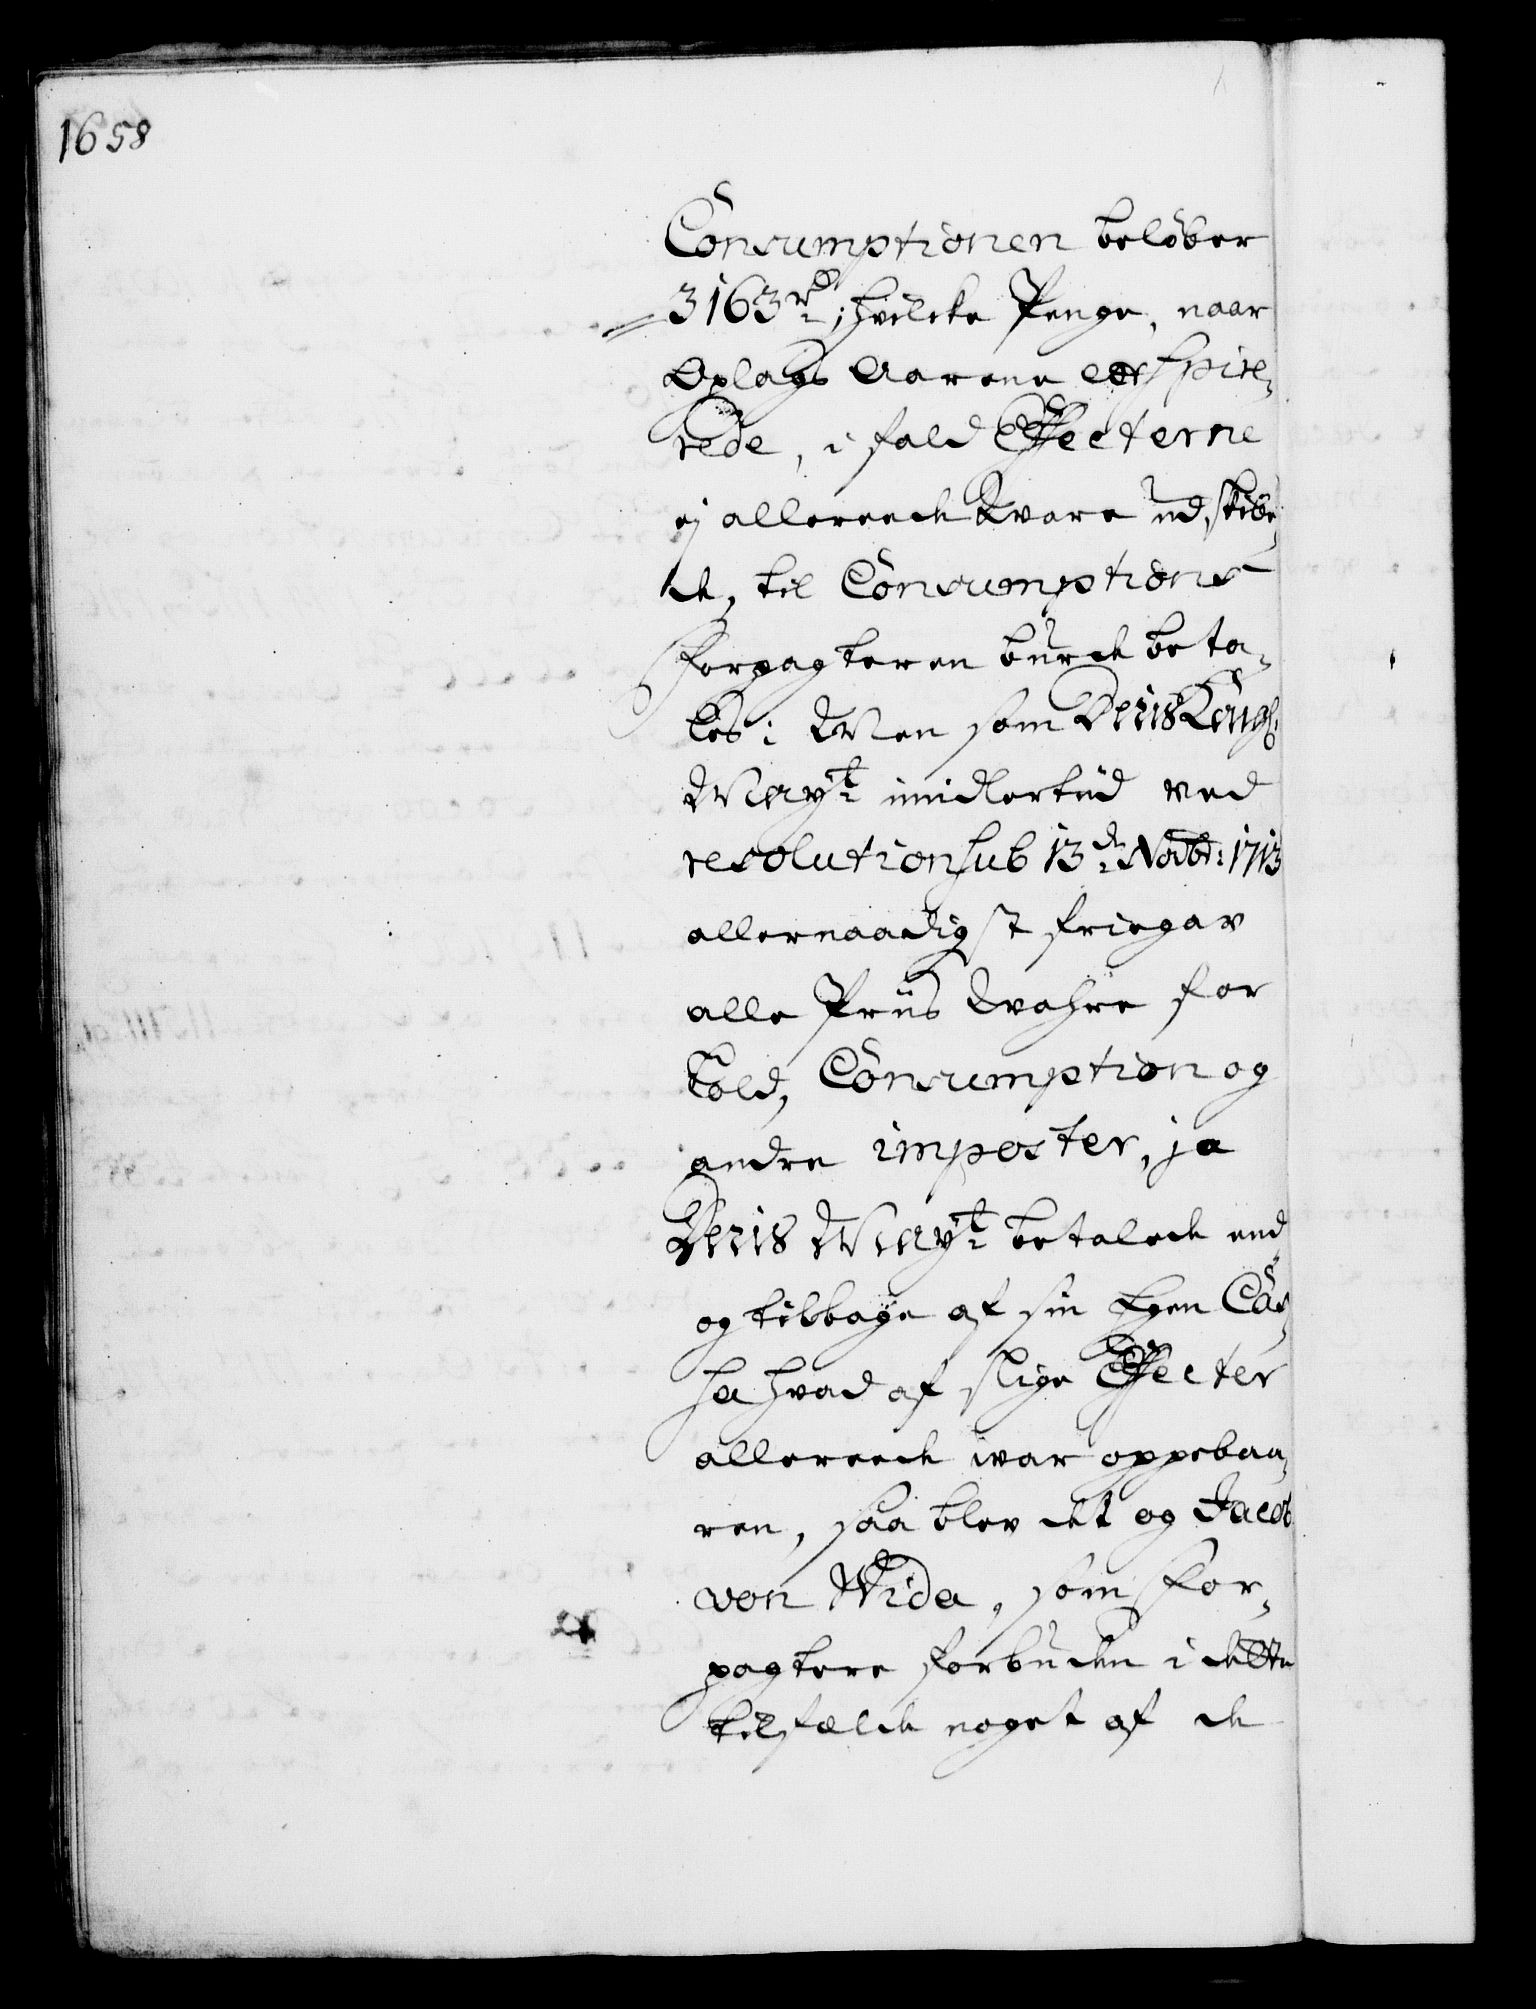 1658
Consumptionen beløber
3163 rd; hvilcke Penge, naar
Oplags Aarene exspire-
rede, i fald Effecterne
ej allereede vare udskibe-
de, til Consumptions
Forpagteren burde beta-
les; Men som Deris Kongl:
Mayt imidlertiid ved
resolution sub 13de Novbr: 1713
allernaadigst friegav
alle Priis Wahre for
Told, Consumption og
andre imposter, ja
Deris Mayt betalede end
og tilbage af sin Egen Cas-
sa hvad af slige Effecter
allereede war oppebaa-
ren, saa blev det og Jacob
von Wida, som For-
pagtere forbuden i dette
tilfælde noget af de